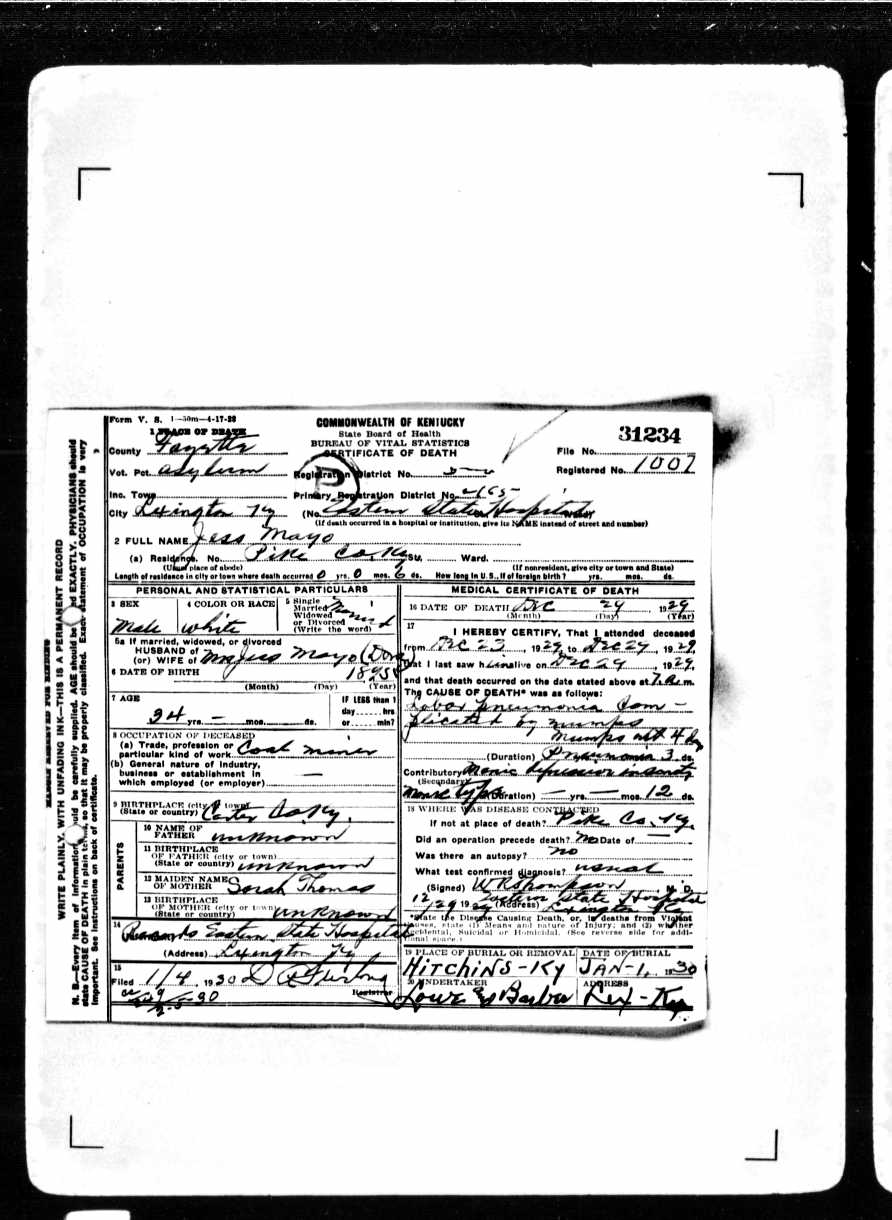 Form V. S. 1—50m—4-17-28
1 PLACE OF DEATH
County Fayette
Vot. Pct. Asylum
Inc. Town
City Lexington Ky
COMMONWEALTH OF KENTUCKY
State Board of Health
BUREAU OF VITAL STATISTICS
CERTIFICATE OF DEATH
Registration District No.
Primary Registration District No.
(No. Eastern State Hospital Ward)
(If death occurred in a hospital or institution, give its NAME instead of street and number)
31234
File No.
Registered No. 1007
2 FULL NAME Jess Mayo
(a) Residence. No. Pike Co. Ky St., Ward.
(Usual place of abode) (If nonresident, give city or town and State)
Length of residence in city or town where death occurred 0 yrs. 0 mos. 6 ds. How long in U.S., if of foreign birth? yrs. mos. ds.
PERSONAL AND STATISTICAL PARTICULARS
3 SEX
Male
4 COLOR OR RACE
White
5 Single
Married
Widowed
or Divorced
(Write the word)
Married
5a If married, widowed, or divorced
HUSBAND of
(or) WIFE of Mrs Jess Mayo (Dora)
6 DATE OF BIRTH 1895
(Month) (Day) (Year)
7 AGE
34 yrs. — mos. ds.
IF LESS than 1
day hrs
or min?
8 OCCUPATION OF DECEASED
(a) Trade, profession or
particular kind of work Coal miner
(b) General nature of industry,
business or establishment in
which employed (or employer) —
9 BIRTHPLACE (city or town)
(State or country) Carter Co Ky.
PARENTS
10 NAME OF
FATHER unknown
11 BIRTHPLACE
OF FATHER (city or town)
(State or country) unknown
12 MAIDEN NAME
OF MOTHER Sarah Thomas
13 BIRTHPLACE
OF MOTHER (city or town)
(State or country) unknown
14
Records Eastern State Hospital
(Address) Lexington Ky
15
Filed 1/4, 1930
Registrar
MEDICAL CERTIFICATE OF DEATH
16 DATE OF DEATH Dec 29 1929
(Month) (Day) (Year)
17
I HEREBY CERTIFY, That I attended deceased
from Dec 23, 1929, to Dec 29, 1929,
that I last saw him alive on Dec 29, 1929,
and that death occurred on the date stated above at 7.a.m.
The CAUSE OF DEATH* was as follows:
Lobar pneumonia com-
plicated by mumps
mumps 4 days
(Duration) Pneumonia 3 ds.
Contributory Manic depressive insanity
(Secondary)
Manic type (Duration) — yrs. — mos. 12 ds.
18 WHERE WAS DISEASE CONTRACTED
If not at place of death? Pike Co. Ky.
Did an operation precede death? No Date of —
Was there an autopsy? no
What test confirmed diagnosis? usual
(Signed) W R Thompson, M. D.
12/29 1929 (Address) Eastern State Hospital
Lexington Ky
*State the Disease Causing Death, or, in deaths from Violent
Causes, state (1) Means and nature of Injury; and (2) whether
Accidental, Suicidal or Homicidal. (See reverse side for addi-
tional space.)
19 PLACE OF BURIAL OR REMOVAL
HITCHINS-KY
DATE OF BURIAL
JAN-1, 1930
20 UNDERTAKER
Lowe & Barber
ADDRESS
Lex-Ky
MARGIN RESERVED FOR BINDING
WRITE PLAINLY, WITH UNFADING INK—THIS IS A PERMANENT RECORD
N. B.—Every item of information should be carefully supplied. AGE should be stated EXACTLY. PHYSICIANS should
state CAUSE OF DEATH in plain terms, so that it may be properly classified. Exact statement of OCCUPATION is very
important. See instructions on back of certificate.